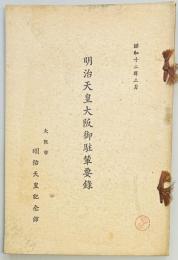 昭和十二年三月
明治天皇大阪御駐輦要錄
大阪市
明治天皇記念館